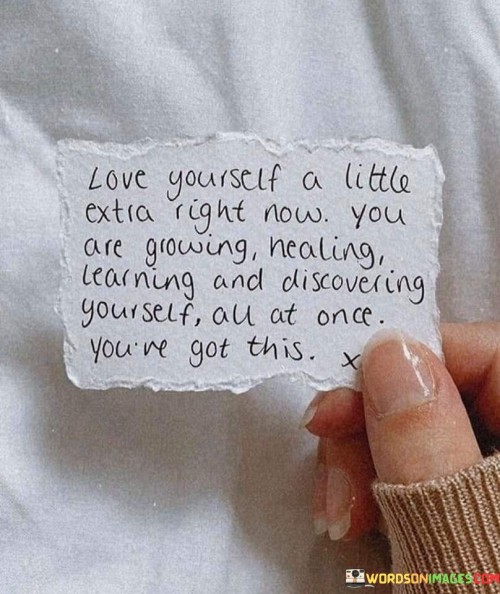 Love yourself a little
extra right now. you
are growing, healing,
learning and discovering
yourself, all at once.
you've got this. x
WORDSONIMAGES.COM